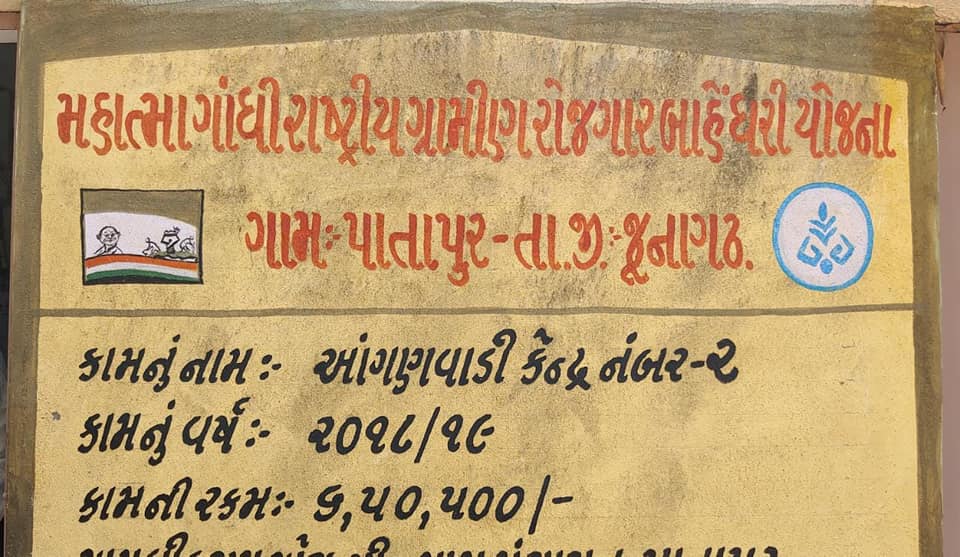 મહાત્મા ગાંધી રાષ્ટ્રીય ગ્રામીણ રોજગાર બાહેંધરી યોજના
ગામઃ- પાતાપુર - તા.જી.ઃ- જૂનાગઢ.
કામનું નામઃ- આંગણવાડી કેન્દ્ર નંબર-૨
કામનું વર્ષઃ- ૨૦૧૮/૧૯
કામની રકમઃ- ૬,૫૦,૫૦૦/-